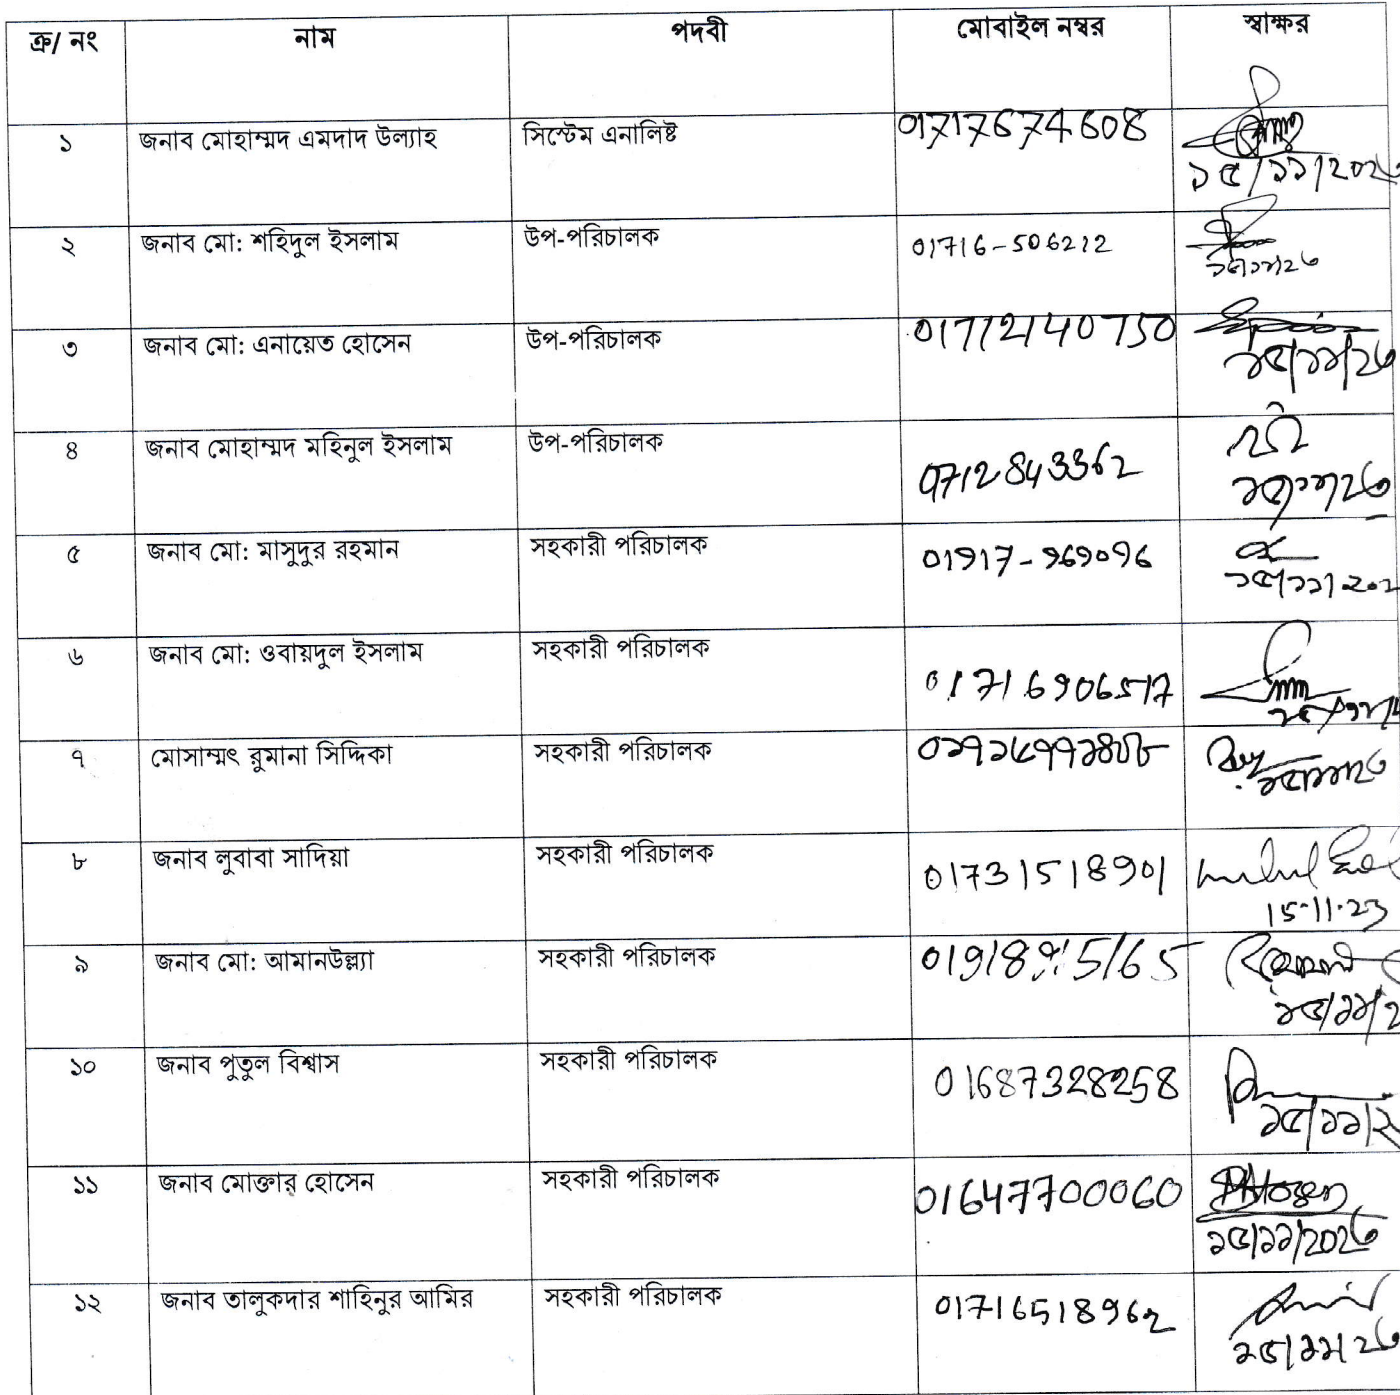 ক্র/ নং নাম পদবী মোবাইল নম্বর স্বাক্ষর
১ জনাব মোহাম্মদ এমদাদ উল্যাহ সিস্টেম এনালিষ্ট 01717674608
১৫/১১/২০২৩
২ জনাব মো: শহিদুল ইসলাম উপ-পরিচালক 01716-506212
১৫/১১/২৩
৩ জনাব মো: এনায়েত হোসেন উপ-পরিচালক 01712140750
১৫/১১/২৩
৪ জনাব মোহাম্মদ মহিনুল ইসলাম উপ-পরিচালক 01712843362
১৫/১১/২৩
৫ জনাব মো: মাসুদুর রহমান সহকারী পরিচালক 01917-969096
১৫/১১/২০২
৬ জনাব মো: ওবায়দুল ইসলাম সহকারী পরিচালক 01716906517
৭ মোসাম্মৎ রুমানা সিদ্দিকা সহকারী পরিচালক
১৫/১১/২৩
৮ জনাব লুবাবা সাদিয়া সহকারী পরিচালক 01731518901
15-11-23
৯ জনাব মো: আমানউল্ল্যা সহকারী পরিচালক
১৫/১১/২
১০ জনাব পুতুল বিশ্বাস সহকারী পরিচালক 01687328258
১৫/১১/২
১১ জনাব মোক্তার হোসেন সহকারী পরিচালক 01647700060
১৫/১১/২০২৩
১২ জনাব তালুকদার শাহিনুর আমির সহকারী পরিচালক 01716518962
১৫/১১/২৩